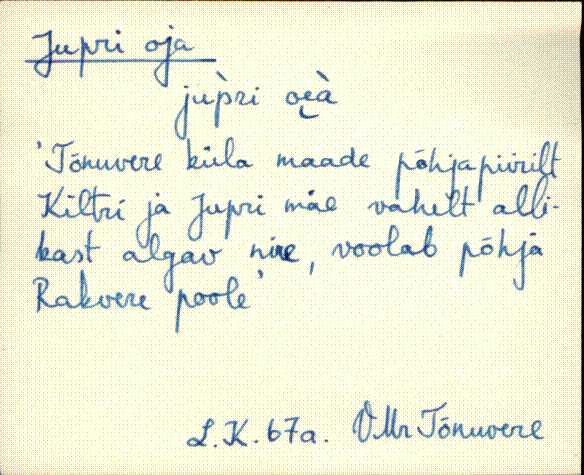 Jupri oja
jup̀ri oi̯à
'Tõnuvere küla maade põhjapiirilt
Kiltri ja Jupri mäe vahelt alli-
kast algav nire, voolab põhja
Rakvere poole'
L.K. 67a. VMr Tõnuvere